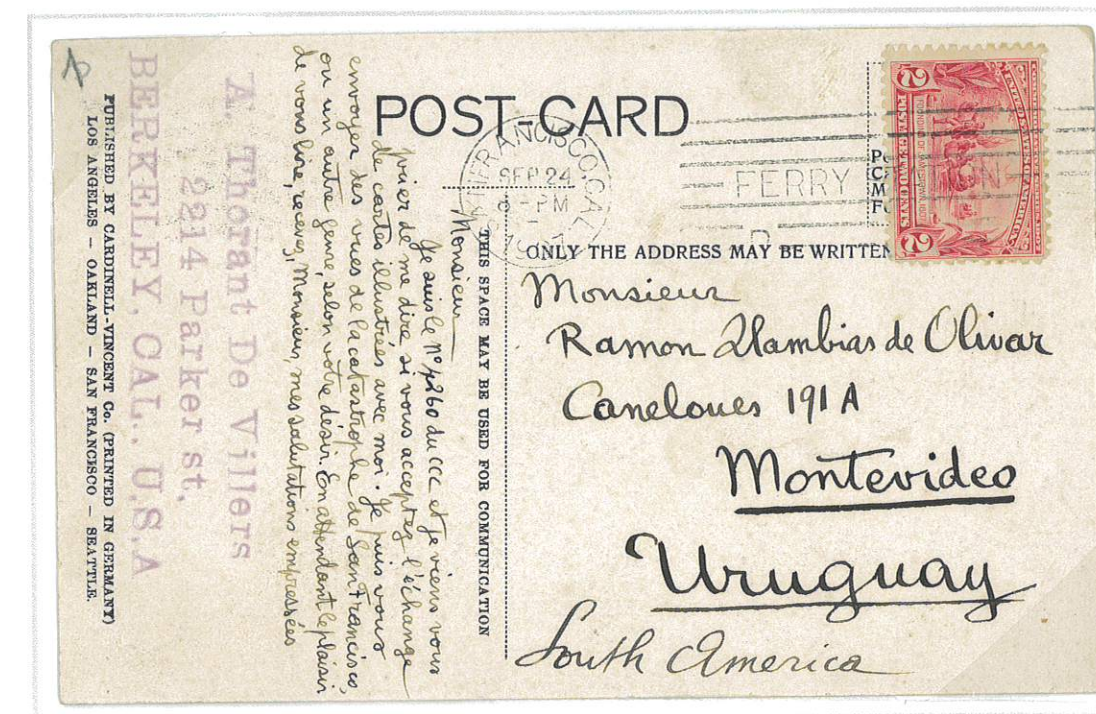 POST-CARD
SAN FRANCISCO, CAL.
SEP 24
8-PM
FERRY
ONLY THE ADDRESS MAY BE WRITTEN
2
FOUNDING OF JAMESTOWN 1607
POSTAGE TWO CENTS
2
Monsieur
Ramon Llambias de Olivar
Caneloues 191 A
Montevideo
Uruguay
South America
THIS SPACE MAY BE USED FOR COMMUNICATION
Monsieur
Je suis le nº 4260 du CCC et je viens vous
prier de me dire si vous acceptez l'échange
de cartes illustrées avec moi. Je puis vous
envoyer des vues de la catastrophe de San Francisco,
ou un autre genre, selon votre désir. En attendant le plaisir
de vous lire, recevez, Monsieur, mes salutations empressées
A. Thorant De Villers
2214 Parker st,
BERKELEY, CAL., U.S.A
PUBLISHED BY CARDINELL-VINCENT Co. (PRINTED IN GERMANY)
LOS ANGELES – OAKLAND – SAN FRANCISCO – SEATTLE.